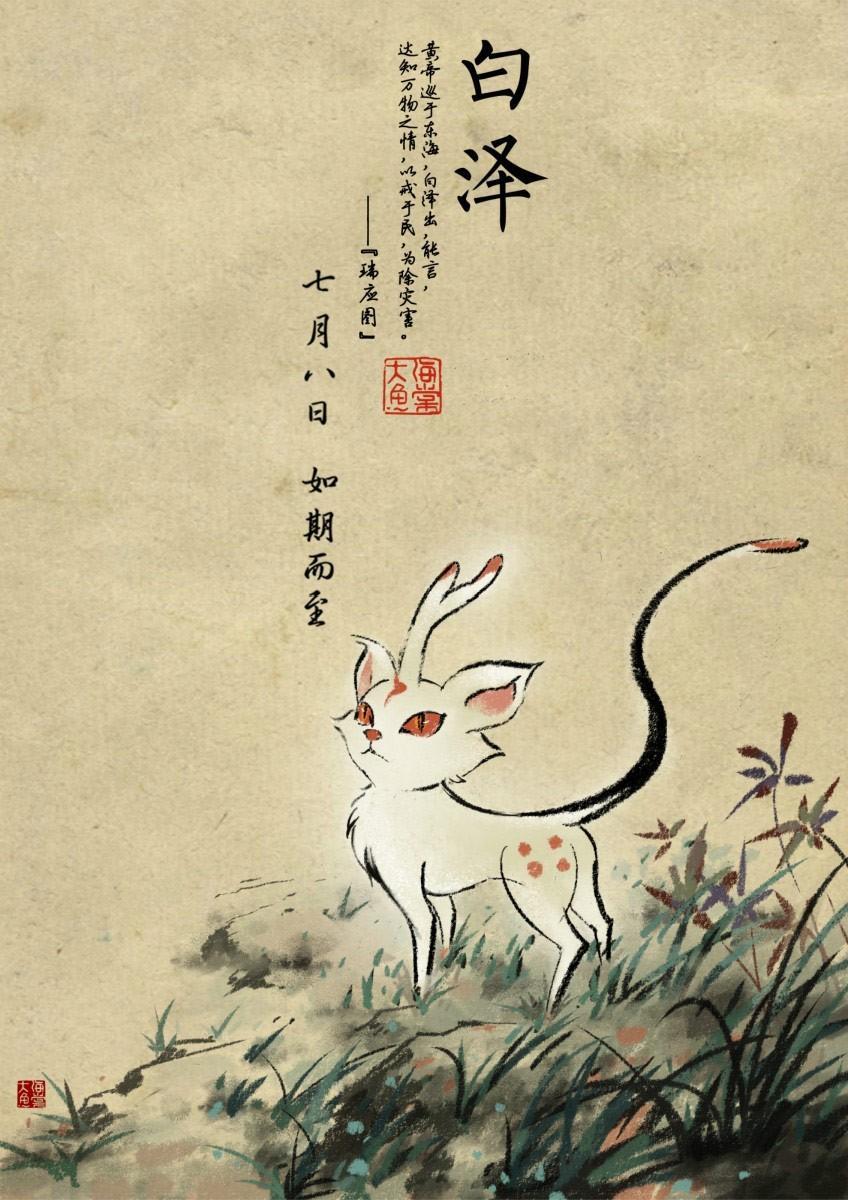 白泽
黄帝巡于东海，白泽出，能言，
达知万物之情，以戒于民，为除灾害。
——『瑞应图』
海棠
大鱼
七月八日 如期而至
海棠
大鱼